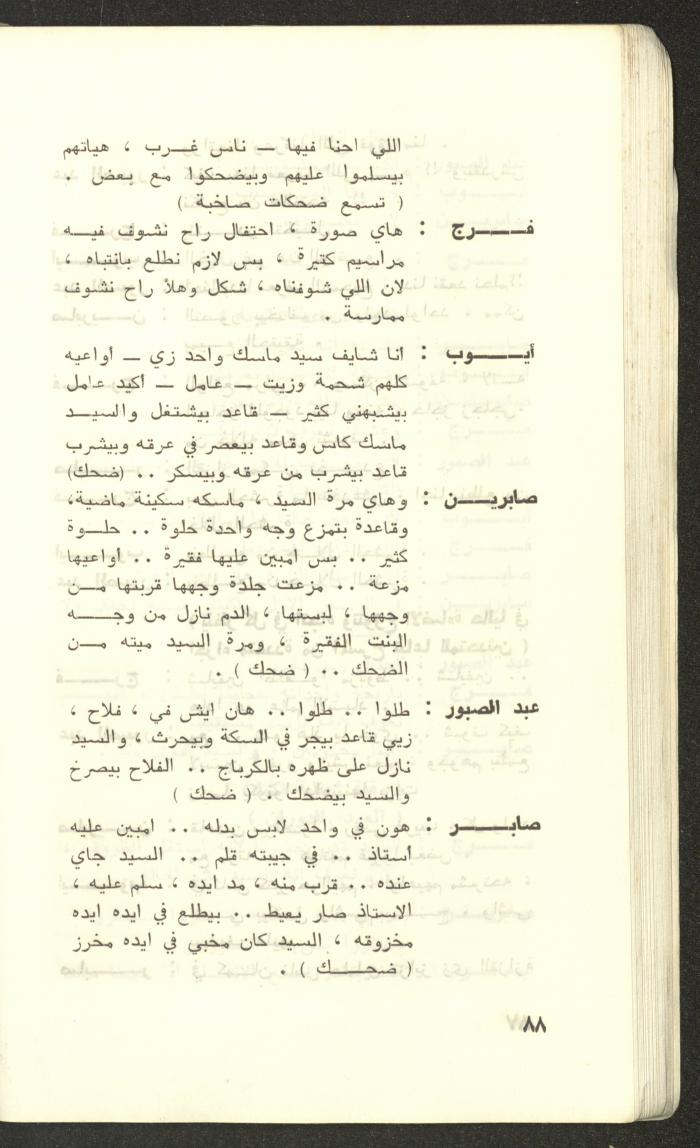 اللي احنا فيها ــ ناس غــرب ، هياتهم
بيسلموا عليهم وبيضحكوا مع بعض .
( تسمع ضحكات صاخبة )
فــــرج : هاي صورة ، احتفال راح نشوف فيــه
مراسيم كتيرة ، بس لازم نطلع بانتباه ،
لان اللي شوفناه ، شكل وهلأ راح نشوف
ممارسة .
أيــــوب : انا شايف سيد ماسك واحد زي ــ أواعيه
كلهم شحمة وزيت ــ عامل ــ أكيد عامل
بيشبهني كثير ــ قاعد بيشتغل والسيــد
ماسك كاس وقاعد بيعصر في عرقه وبيشرب
قاعد بيشرب من عرقه وبيسكر .. (ضحك)
صابريــــن : وهاي مرة السيد ، ماسكه سكينة ماضية،
وقاعدة بتمزع وجه واحدة حلوة .. حلــوة
كثير .. بس امبين عليها فقيرة .. أواعيها
مزعة .. مزعت جلدة وجهها قربتها مــن
وجهها ، لبستها ، الدم نازل من وجــــه
البنت الفقيرة ، ومرة السيد ميته مــن
الضحك .. ( ضحك ) .
عبد الصبور : طلوا .. طلوا .. هان ايش في ، فلاح ،
زيي قاعد بيجر في السكة وبيحرث ، والسيد
نازل على ظهره بالكرباج .. الفلاح بيصرخ
والسيد بيضحك . ( ضحك )
صابــــــر : هون في واحد لابس بدله .. امبين عليه
أستاذ .. في جيبته قلم .. السيد جاي
عنده .. قرب منه ، مد ايده ، سلم عليه ،
الاستاذ صار يعيط .. بيطلع في ايده ايده
مخزوقه ، السيد كان مخبي في ايده مخرز
( ضحــــك ) .
٨٨